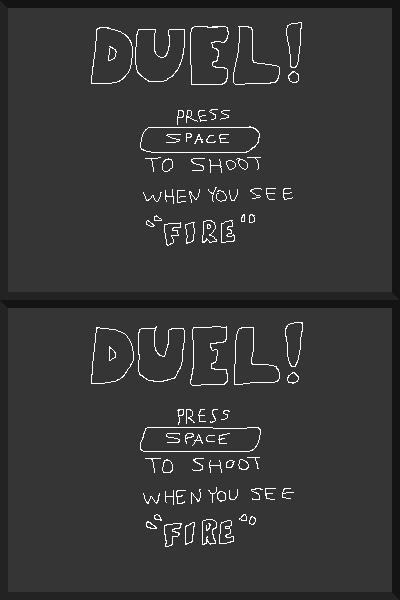 DUEL!
PRESS
SPACE
TO SHOOT
WHEN YOU SEE
"FIRE"
DUEL!
PRESS
SPACE
TO SHOOT
WHEN YOU SEE
"FIRE"